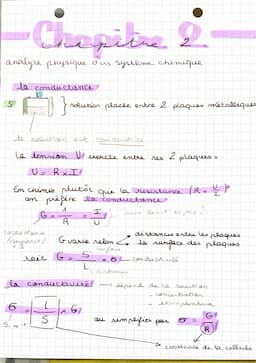 Chapitre 2
analyse physique d'un système chimique
la conductance
S
solution placée entre 2 plaques métalliques
la solution est conductrice
la tension U exercée entre ses 2 plaques :
U = R x I
En chimie plutôt que la resistance (R = U/I)
on préfère la conductance
G = 1/R = I/U
conductance
(siemens)
G varie selon distances entre les plaques
la surface des plaques
surface
soit G = S/l x σ conductivité
distance
la conductivité → dépend de la solution
- concentration
- température
σ = l/S x G
S.m⁻¹
ou simplifiée par σ = G/k
→ constante de la cellule